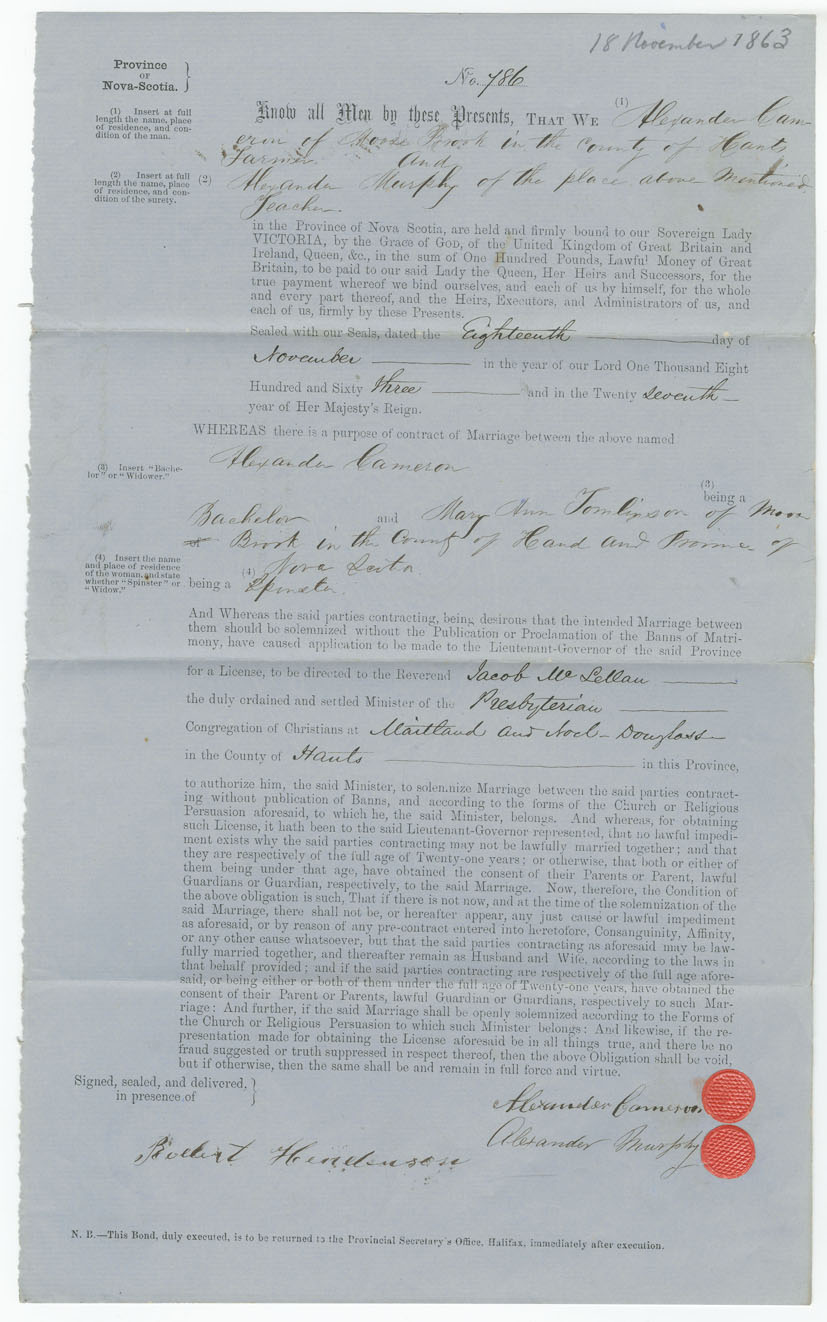 18 November 1863
Province
OF
Nova-Scotia.
No. 786
(1) Insert at full
length the name, place
of residence, and con-
dition of the man.
Know all Men by these Presents, THAT WE (1) Alexander Cam-
eron of Moose Brook in the County of Hants
Farmer and
(2) Insert at full
length the name, place
of residence, and con-
dition of the surety.
(2) Alexander Murphy of the place above Mentioned
Teacher
in the Province of Nova Scotia, are held and firmly bound to our Sovereign Lady
VICTORIA, by the Grace of GOD, of the United Kingdom of Great Britain and
Ireland, Queen, &c., in the sum of One Hundred Pounds, Lawful Money of Great
Britain, to be paid to our said Lady the Queen, Her Heirs and Successors, for the
true payment whereof we bind ourselves, and each of us by himself, for the whole
and every part thereof, and the Heirs, Executors, and Administrators of us, and
each of us, firmly by these Presents.
Sealed with our Seals, dated the Eighteenth day of
November in the year of our Lord One Thousand Eight
Hundred and Sixty three and in the Twenty Seventh
year of Her Majesty's Reign.
WHEREAS there is a purpose of contract of Marriage between the above named
Alexander Cameron
(3) Insert "Bache-
lor" or "Widower."
(3)
being a
Bachelor and Mary Ann Tomlinson of Moose
of Brook in the County of Hand and Provine of
(4) Insert the name
and place of residence
of the woman, and state
whether "Spinster" or
"Widow."
(4) Nova Scotia
being a Spinster.
And Whereas the said parties contracting, being desirous that the intended Marriage between
them should be solemnized without the Publication or Proclamation of the Banns of Matri-
mony, have caused application to be made to the Lieutenant-Governor of the said Province
for a License, to be directed to the Reverend Jacob McLellan
the duly ordained and settled Minister of the Presbyterian
Congregation of Christians at Maitland and Noel-Douglass
in the County of Hants in this Province,
to authorize him, the said Minister, to solemnize Marriage between the said parties contract-
ing without publication of Banns, and according to the forms of the Church or Religious
Persuasion aforesaid, to which he, the said Minister, belongs. And whereas, for obtaining
such License, it hath been to the said Lieutenant-Governor represented, that no lawful impedi-
ment exists why the said parties contracting may not be lawfully married together; and that
they are respectively of the full age of Twenty-one years; or otherwise, that both or either of
them being under that age, have obtained the consent of their Parents or Parent, lawful
Guardians or Guardian, respectively, to the said Marriage. Now, therefore, the Condition of
the above obligation is such, That if there is not now, and at the time of the solemnization of the
said Marriage, there shall not be, or hereafter appear, any just cause or lawful impediment
as aforesaid, or by reason of any pre-contract entered into heretofore, Consanguinity, Affinity,
or any other cause whatsoever, but that the said parties contracting as aforesaid may be law-
fully married together, and thereafter remain as Husband and Wife, according to the laws in
that behalf provided; and if the said parties contracting are respectively of the full age afore-
said, or being either or both of them under the full age of Twenty-one years, have obtained the
consent of their Parent or Parents, lawful Guardian or Guardians, respectively to such Mar-
riage: And further, if the said Marriage shall be openly solemnized according to the Forms of
the Church or Religious Persuasion to which such Minister belongs: And likewise, if the re-
presentation made for obtaining the License aforesaid be in all things true, and there be no
fraud suggested or truth suppressed in respect thereof, then the above Obligation shall be void,
but if otherwise, then the same shall be and remain in full force and virtue.
Signed, sealed, and delivered,
in presence of
Alexander Cameron
Alexander Murphy
Robert Henderson
N. B.—This Bond, duly executed, is to be returned to the Provincial Secretary's Office, Halifax, immediately after execution.